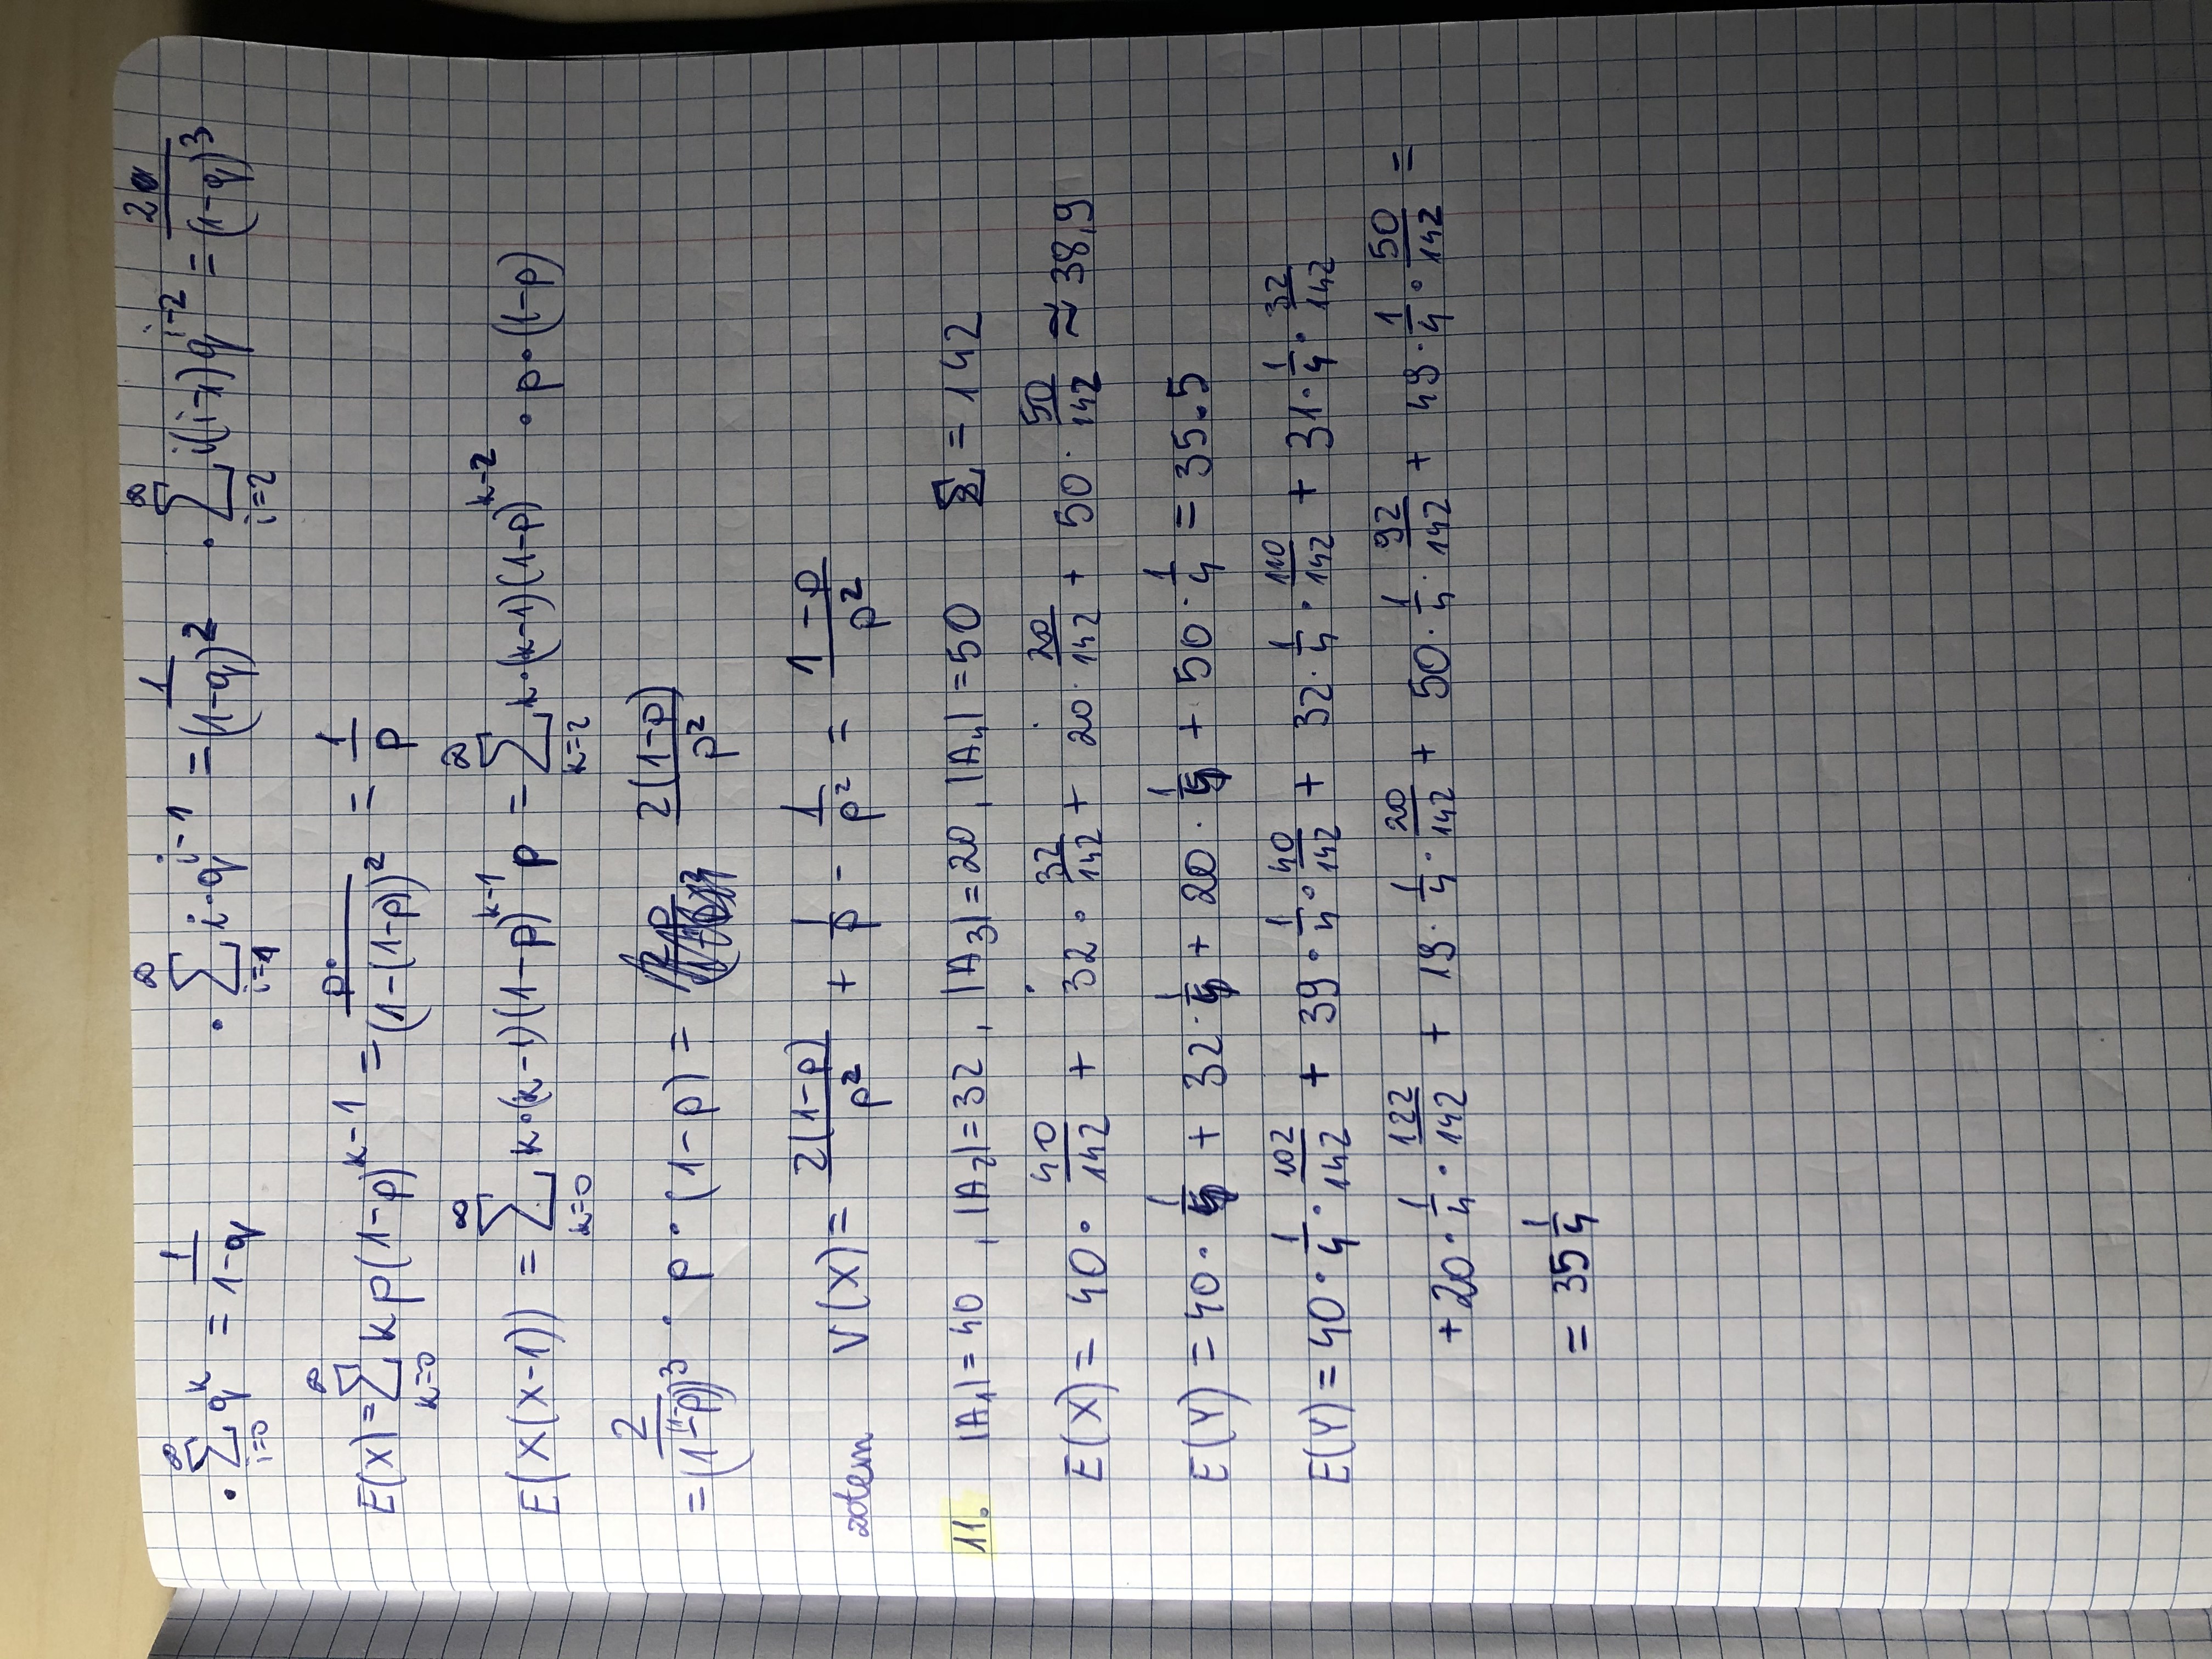 · ∞∑i=0 q^k = 1/(1-q) · ∞∑i=1 i·q^(i-1) = 1/(1-q)^2 · ∞∑i=2 i(i-1)q^(i-2) = 2/(1-q)^3
E(X) = ∞∑k=0 k p(1-p)^(k-1) = p·/(1-(1-p))^2 = 1/p
E(X(X-1)) = ∞∑k=0 k·(k-1)(1-p)^(k-1) p = ∞∑k=2 k·(k-1)(1-p)^(k-2) · p·(1-p)
= 2/(1-(1-p))^3 · p·(1-p) = 2(1-p)/p^2
zatem V(X) = 2(1-p)/p^2 + 1/p - 1/p^2 = (1-p)/p^2
11. |A₁| = 40, |A₂| = 32, |A₃| = 20, |A₄| = 50 Σ = 142
E(X) = 40·40/142 + 32·32/142 + 20·20/142 + 50·50/142 ≈ 38,9
E(Y) = 40·1/4 + 32·1/4 + 20·1/4 + 50·1/4 = 35.5
E(Y) = 40·1/4·102/142 + 39·1/4·40/142 + 32·1/4·110/142 + 31·1/4·32/142
+ 20·1/4·122/142 + 19·1/4·20/142 + 50·1/4·92/142 + 49·1/4·50/142 =
= 35 1/4